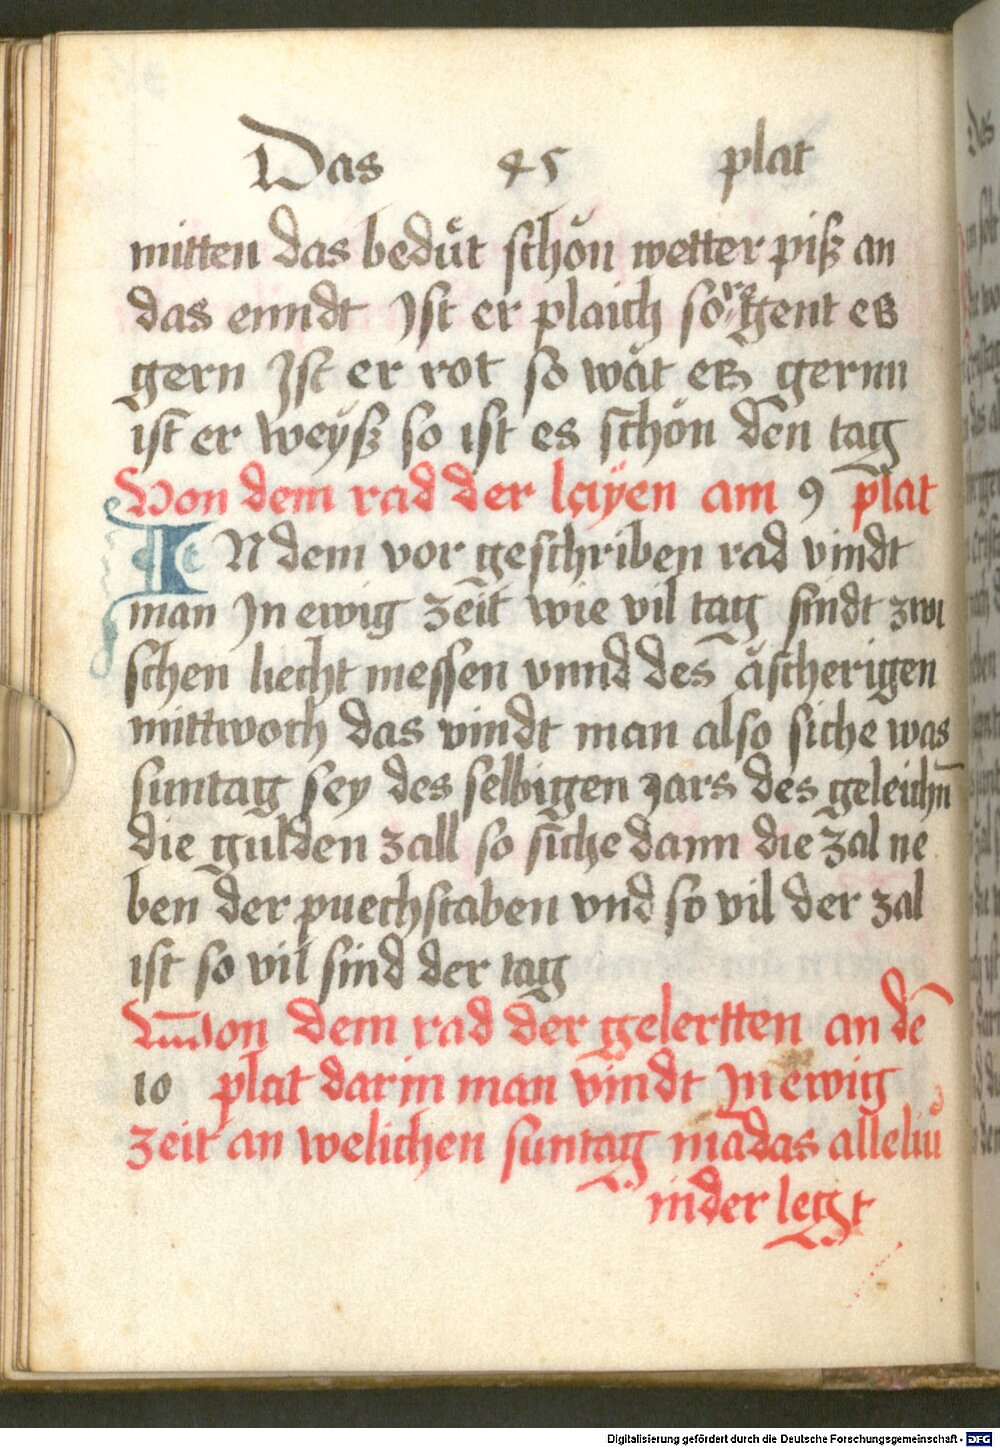 Das 45 plat
mitten das bedu̇t schön wetter piß an
das enndt Ist er plaich so regent es
gern Ist er rot so wät es gernn
ist er weyß so ist es schön den tag
Von dem rad der layen am 9 plat
IN dem vor geschriben rad vindt
man In ewig zeit wie vil tag sindt zwi
schen liecht messen vnnd des äscherigen
mittwoch das vindt man also siche was
suntag sey des selbigen Jars des geleichn̄
die gulden zall so siche dann die zal ne
ben der puechstaben vnd so vil der zal
ist so vil sind der tag
Von dem rad der gelertten an dē
10 plat darin man vindt In ewig
zeit an welichen suntag mā das alleliu
in der legt
Digitalisierung gefördert durch die Deutsche Forschungsgemeinschaft - DFG